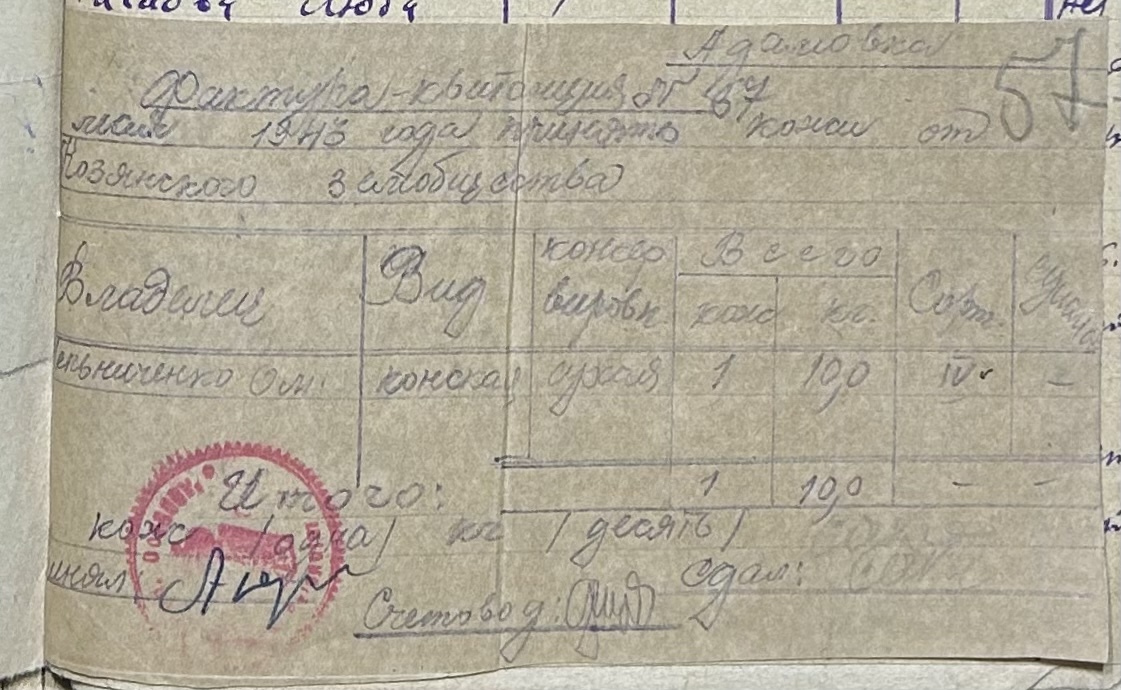 Адамовка
57
Фактура-квитанция № 67
мая 1943 года принято кожи от
Козянского землобщества
Владелец Вид консер вировк. Всего кожс кг. Сорт.
ельниченко Ом. конская сухая 1 10,0 IV -
Итого: 1 10,0 - -
кожс /одна/ кг /десять/
инял: сдал:
Счетовод: